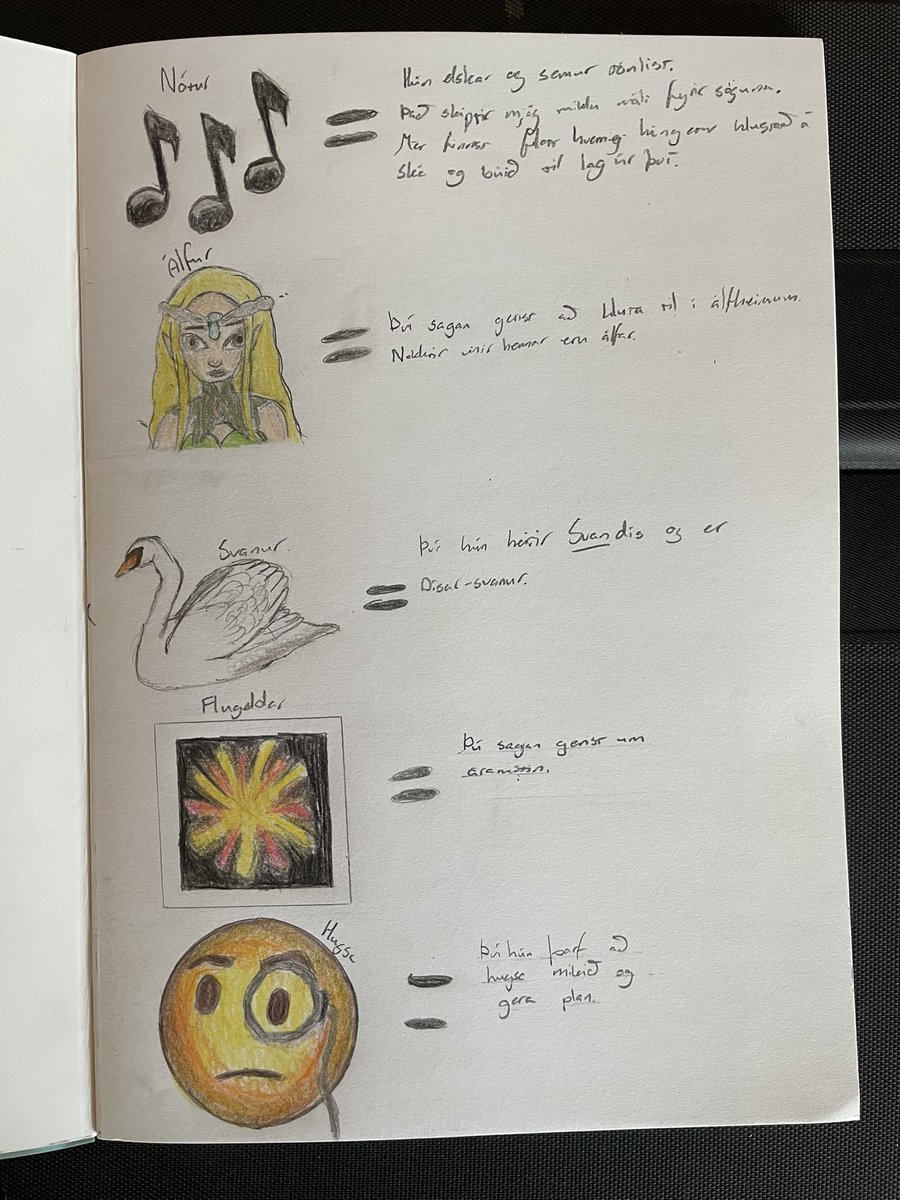 Nótur
Hún elskar og semur tónlist.
Það skiptir mjög miklu máli fyrir söguna.
Mer finnst flott hvernig hún getur hlustað á
og búið til lag úr því.
Álfur
Því sagan gerist að hluta til í álfheimum.
Nokkrir vinir hennar eru álfar.
Svanur
Því hún heitir Svandís og er
Dísar-svanur.
Flugeldar
Því sagan gerist um
áramótin.
Hugsa
Því hún þarf að
hugsa mikið og
gera plan.